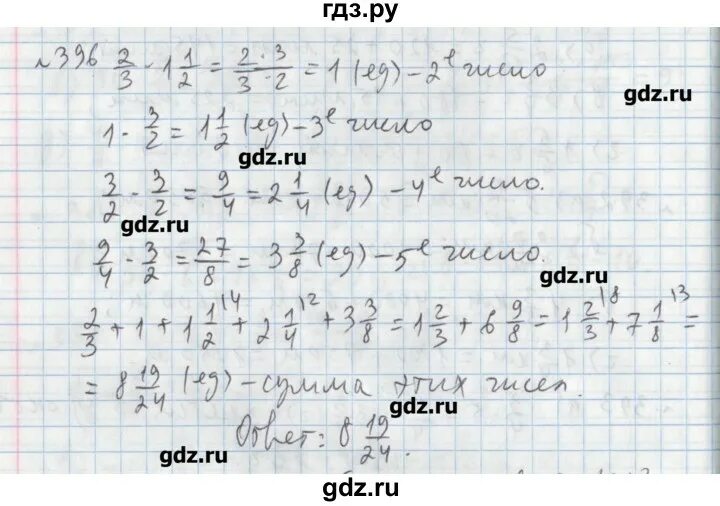 гдз.ру
№396 2/3 · 1 1/2 = 2·3/3·2 = 1 (ед) – 2е число
gdz.ru
1 · 3/2 = 1 1/2 (ед) – 3е число
gdz.ru
3/2 · 3/2 = 9/4 = 2 1/4 (ед) – 4е число.
gdz.ru
9/4 · 3/2 = 27/8 = 3 3/8 (ед) – 5е число.
gdz.ru
2/3 + 1 + 1 1/2 |4 + 2 1/4 |2 + 3 3/8 = 1 2/3 + 6 9/8 = 1 2/3 |8 + 7 1/8 |3 =
= 8 19/24 (ед) – сумма этих чисел.
gdz.ru
Ответ: 8 19/24.
gdz.ru
gdz.ru